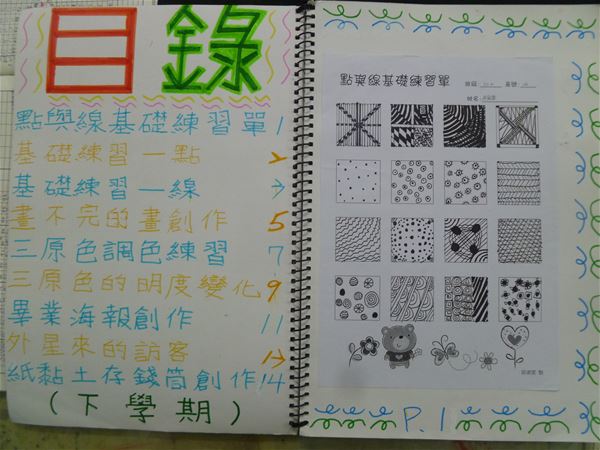 目錄
點與線基礎練習單 1
基礎練習—點 2
基礎練習—線 3
畫不完的畫創作 5
三原色調色練習 7
三原色的明度變化 9
畢業海報創作 11
外星來的訪客 13
紙黏土存錢筒創作 14
(下學期)
點與線基礎練習單
班級: 座號:
姓名:
P.1